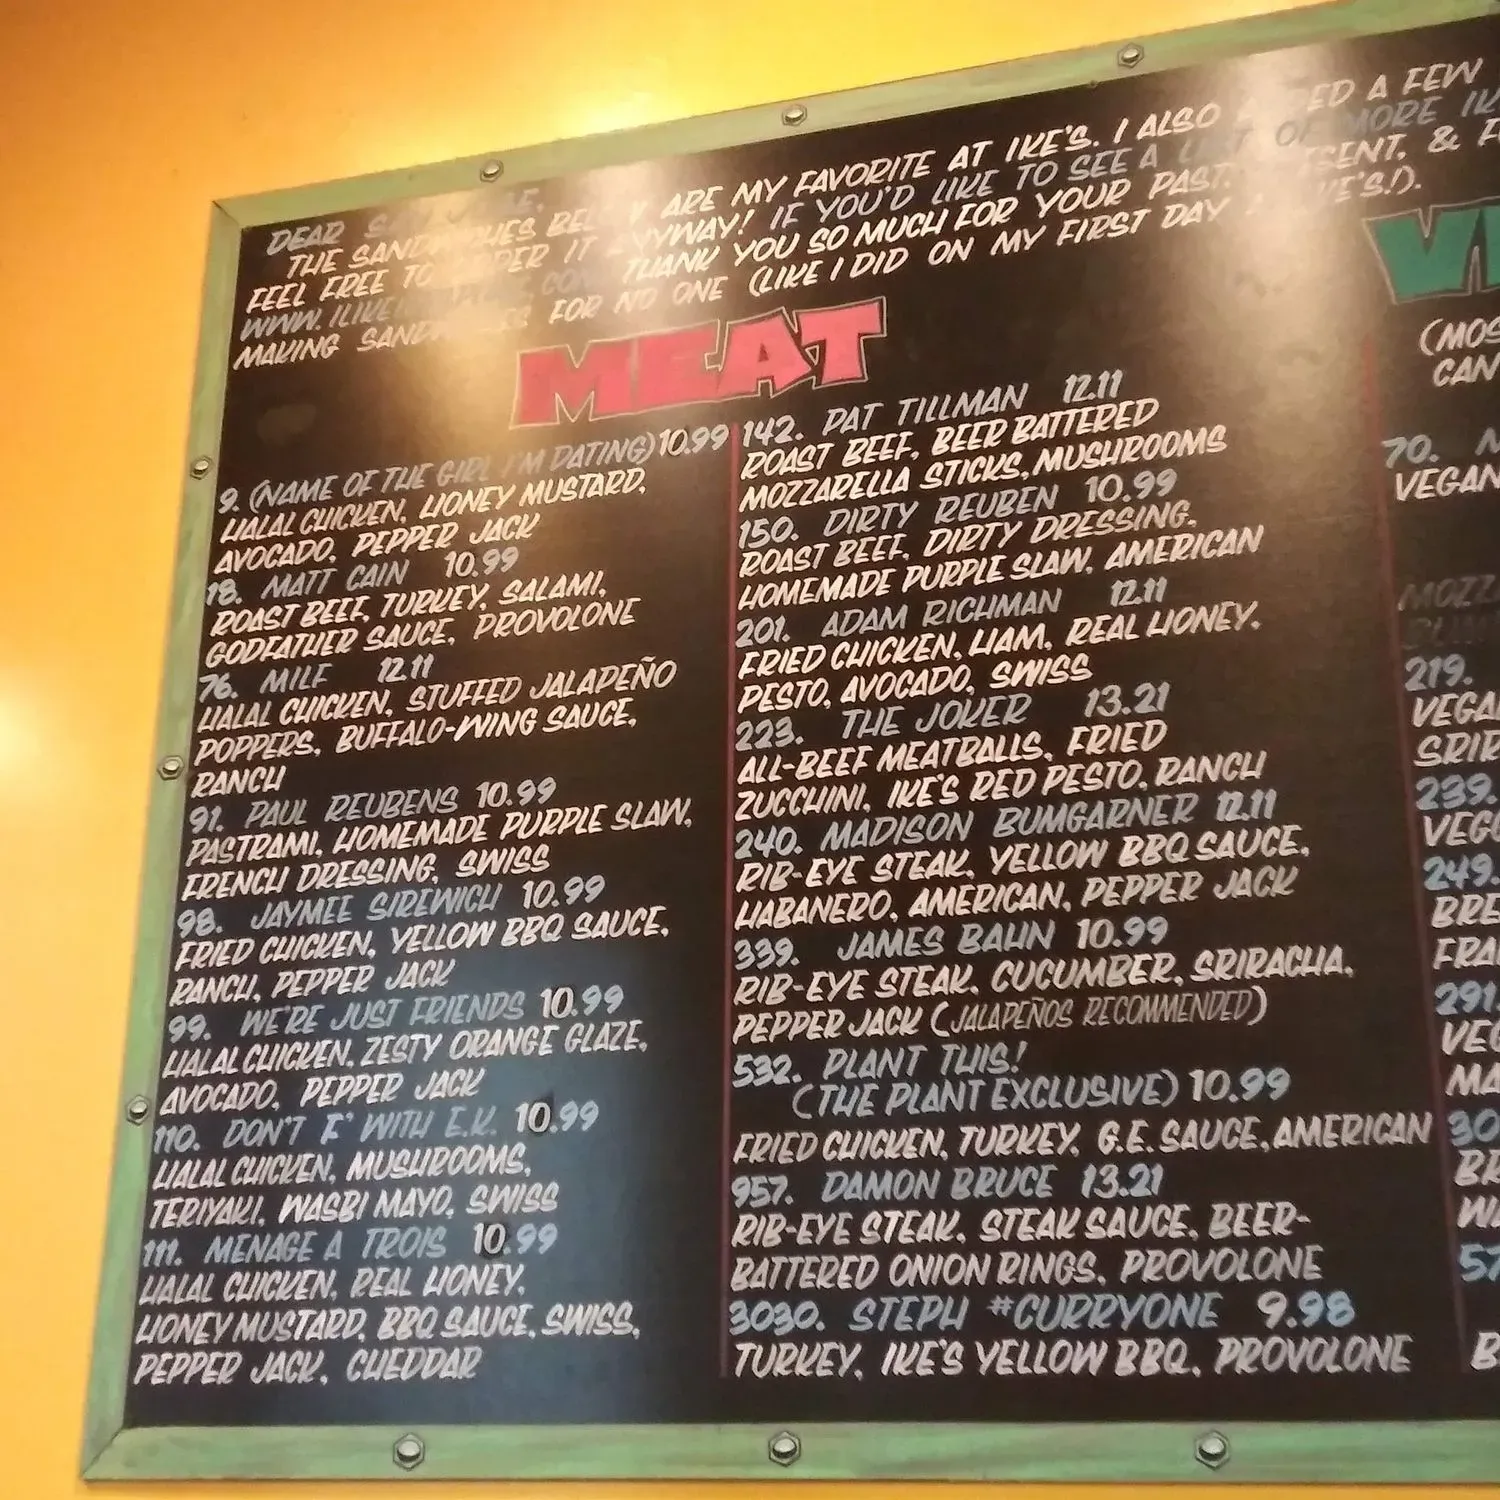 DEAR
THE SANDWICHES BELOW ARE MY FAVORITE AT IKE'S. I ALSO ADDED A FEW
FEEL FREE TO ORDER IT ANYWAY! IF YOU'D LIKE TO SEE A LIST OF MORE
THANK YOU SO MUCH FOR YOUR PAST, PRESENT, &
MAKING SANDWICHES FOR NO ONE (LIKE I DID ON MY FIRST DAY IKE'S!).
MEAT
9. (NAME OF THE GIRL I'M DATING) 10.99
HALAL CHICKEN, HONEY MUSTARD,
AVOCADO, PEPPER JACK
18. MATT CAIN 10.99
ROAST BEEF, TURKEY, SALAMI,
GODFATHER SAUCE, PROVOLONE
76. MILF 12.11
HALAL CHICKEN, STUFFED JALAPEÑO
POPPERS, BUFFALO-WING SAUCE,
RANCH
91. PAUL REUBENS 10.99
PASTRAMI, HOMEMADE PURPLE SLAW,
FRENCH DRESSING, SWISS
98. JAYMEE SIREWICH 10.99
FRIED CHICKEN, YELLOW BBQ SAUCE,
RANCH, PEPPER JACK
99. WE'RE JUST FRIENDS 10.99
HALAL CHICKEN, ZESTY ORANGE GLAZE,
AVOCADO, PEPPER JACK
110. DON'T F' WITH E.K. 10.99
HALAL CHICKEN, MUSHROOMS,
TERIYAKI, WASBI MAYO, SWISS
111. MENAGE A TROIS 10.99
HALAL CHICKEN, REAL HONEY,
HONEY MUSTARD, BBQ SAUCE, SWISS,
PEPPER JACK, CHEDDAR
142. PAT TILLMAN 12.11
ROAST BEEF, BEER BATTERED
MOZZARELLA STICKS, MUSHROOMS
150. DIRTY REUBEN 10.99
ROAST BEEF, DIRTY DRESSING,
HOMEMADE PURPLE SLAW, AMERICAN
201. ADAM RICHMAN 12.11
FRIED CHICKEN, HAM, REAL HONEY,
PESTO, AVOCADO, SWISS
223. THE JOKER 13.21
ALL-BEEF MEATBALLS, FRIED
ZUCCHINI, IKE'S RED PESTO, RANCH
240. MADISON BUMGARNER 12.11
RIB-EYE STEAK, YELLOW BBQ SAUCE,
HABANERO, AMERICAN, PEPPER JACK
339. JAMES BAHN 10.99
RIB-EYE STEAK, CUCUMBER, SRIRACHA,
PEPPER JACK (JALAPEÑOS RECOMMENDED)
532. PLANT THIS!
(THE PLANT EXCLUSIVE) 10.99
FRIED CHICKEN, TURKEY, G.E. SAUCE, AMERICAN
957. DAMON BRUCE 13.21
RIB-EYE STEAK, STEAK SAUCE, BEER-
BATTERED ONION RINGS, PROVOLONE
3030. STEPH #CURRYONE 9.98
TURKEY, IKE'S YELLOW BBQ, PROVOLONE
(MOS
CAN
70.
VEGAN
219.
VEGA
SRIR
239.
VEGG
249.
BRE
FRA
291.
VEG
MA
30
BR
57